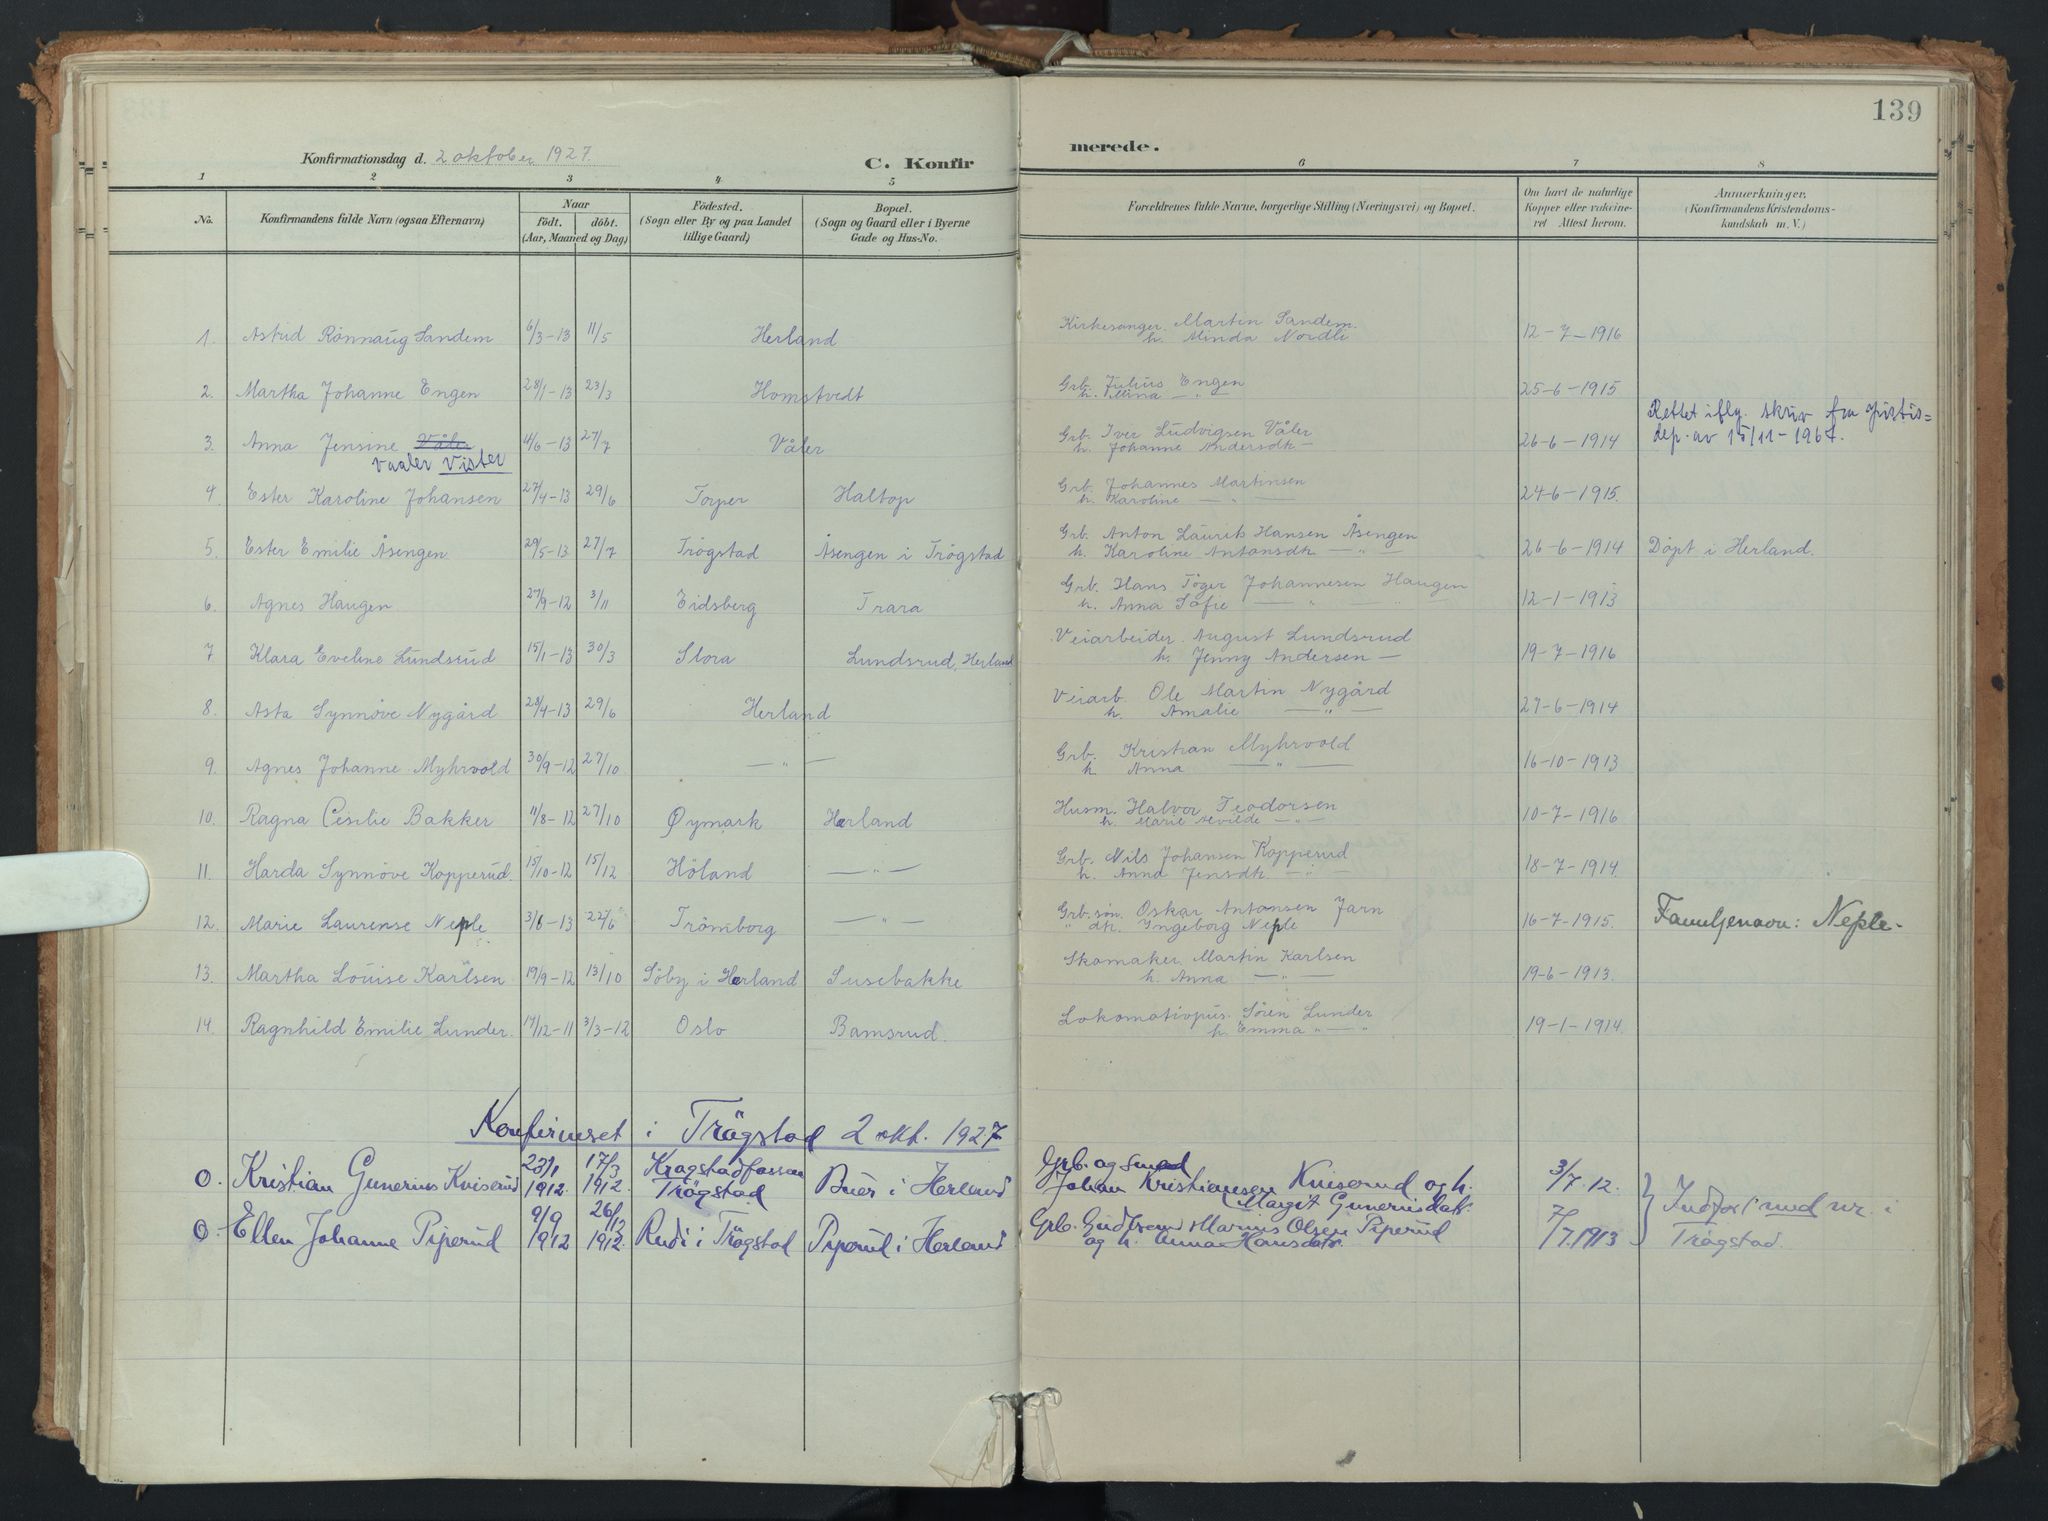 139
Konfirmationsdag d. 2 oktober 1927.
C. Konfirmerede.
1 2 3 4 5 6 7 8
No. Konfirmandens fulde Navn (ogsaa Efternavn) Naar født. døbt. (Aar, Maaned og Dag) Fødested. (Sogn eller By og paa Landet tillige Gaard) Bopæl. (Sogn og Gaard eller i Byerne Gade og Hus-No. Forældrenes fulde Navne, borgerlige Stilling (Næringsvei) og Bopæl. Om havt de naturlige Kopper eller vaccineret Attest herom. Anmærkninger. (Konfirmandens Kristendomskundskab m. V.)
1. Astrid Rønnaug Sandem 6/3-13 11/5 Herland Kirkesanger Martin Sandem. h. Minda Nordli 12-7-1916
2. Martha Johanne Engen 28/1-13 23/3 Homstvedt Grb. Julius Engen h. Villina — " — 25-6-1915
3. Anna Jensine Våler Vaaler Vister 4/6-13 27/7 Våler Grb. Iver Ludvigsen Våler h. Johanne Andersdt — 26-6-1914 Rettet iflg. skriv fra Justis= dep. av 15/11-1967.
4. Ester Karoline Johansen 27/4-13 29/6 Torper Haltop Grb. Johannes Martinsen h. Karoline — " — 24-6-1915.
5. Ester Emilie Åsengen 29/5-13 27/7 Trögstad Åsengen i Trögstad Grb. Anton Laurits Hansen Åsengen h. Karoline Antonsdt — " — 26-6-1914 Döpt i Herland.
6. Agnes Haugen 27/9-12 3/11 Eidsberg Trara Grb. Hans Töger Johannesen Haugen h. Anna Sofie — " — " 12-1-1913
7 Klara Eveline Lundsrud 15/1-13 30/3 Slora Lundsrud, Herland Veiarbeider August Lundsrud h. Jenny Andersen — 19-7-1916
8. Asta Synnöve Nygård 28/4-13 29/6 Herland Veiarb. Ole Martin Nygård h. Amalie — " — 27-6-1914
9. Agnes Johanne Myhrvold 30/9-12 27/10 — " — Grb. Kristian Myhrvold h. Anna — " — 16-10-1913
10. Ragna Cesilie Bakker 11/8-12 27/10 Øymark Herland Husm. Halvor Teodorsen h. Marie Alvilde — " — 10-7-1916
11. Harda Synnöve Kopperud. 15/10-12 15/12 Höland — " — Grb. Nils Johansen Kopperud h. Anna Jensdt. — " — 18-7-1914
12. Marie Laurense Neple 3/6-13 22/6 Trömborg — " — Grb. søn. Oskar Antonsen Jarn " dtr. Ingeborg Neple 16-7-1915. Familjenavn: Neple.
13. Martha Louise Karlsen 19/9-12 13/10 Söby i Herland Susebakke Skomaker Martin Karlsen h. Anna — " — 19-6-1913.
14. Ragnhild Emilie Lunder. 17/12-11 3/3-12 Oslo Bamsrud. Lokomotivpus. Sören Lunder h. Emma " — " 19-1-1914.
Konfirmeret i Trögstad 2 okt. 1927
0. Kristian Gunerius Kniserud 23/1 1912. 17/3 1912. Kragstadfossen Trögstad Buer i Herland Grb. og smed Johan Kristiansen Kniserud og h. Margit Gunerisdatt. 3/7.12.
0. Ellen Johanne Piperud 9/9 1912 26/12 1912. Rudi i Trögstad Piperud i Herland Grb. Gudbrand Marius Olsen Piperud og h. Anna Hansdatr. 7/7.1913 Indført med nr. i Trögstad.